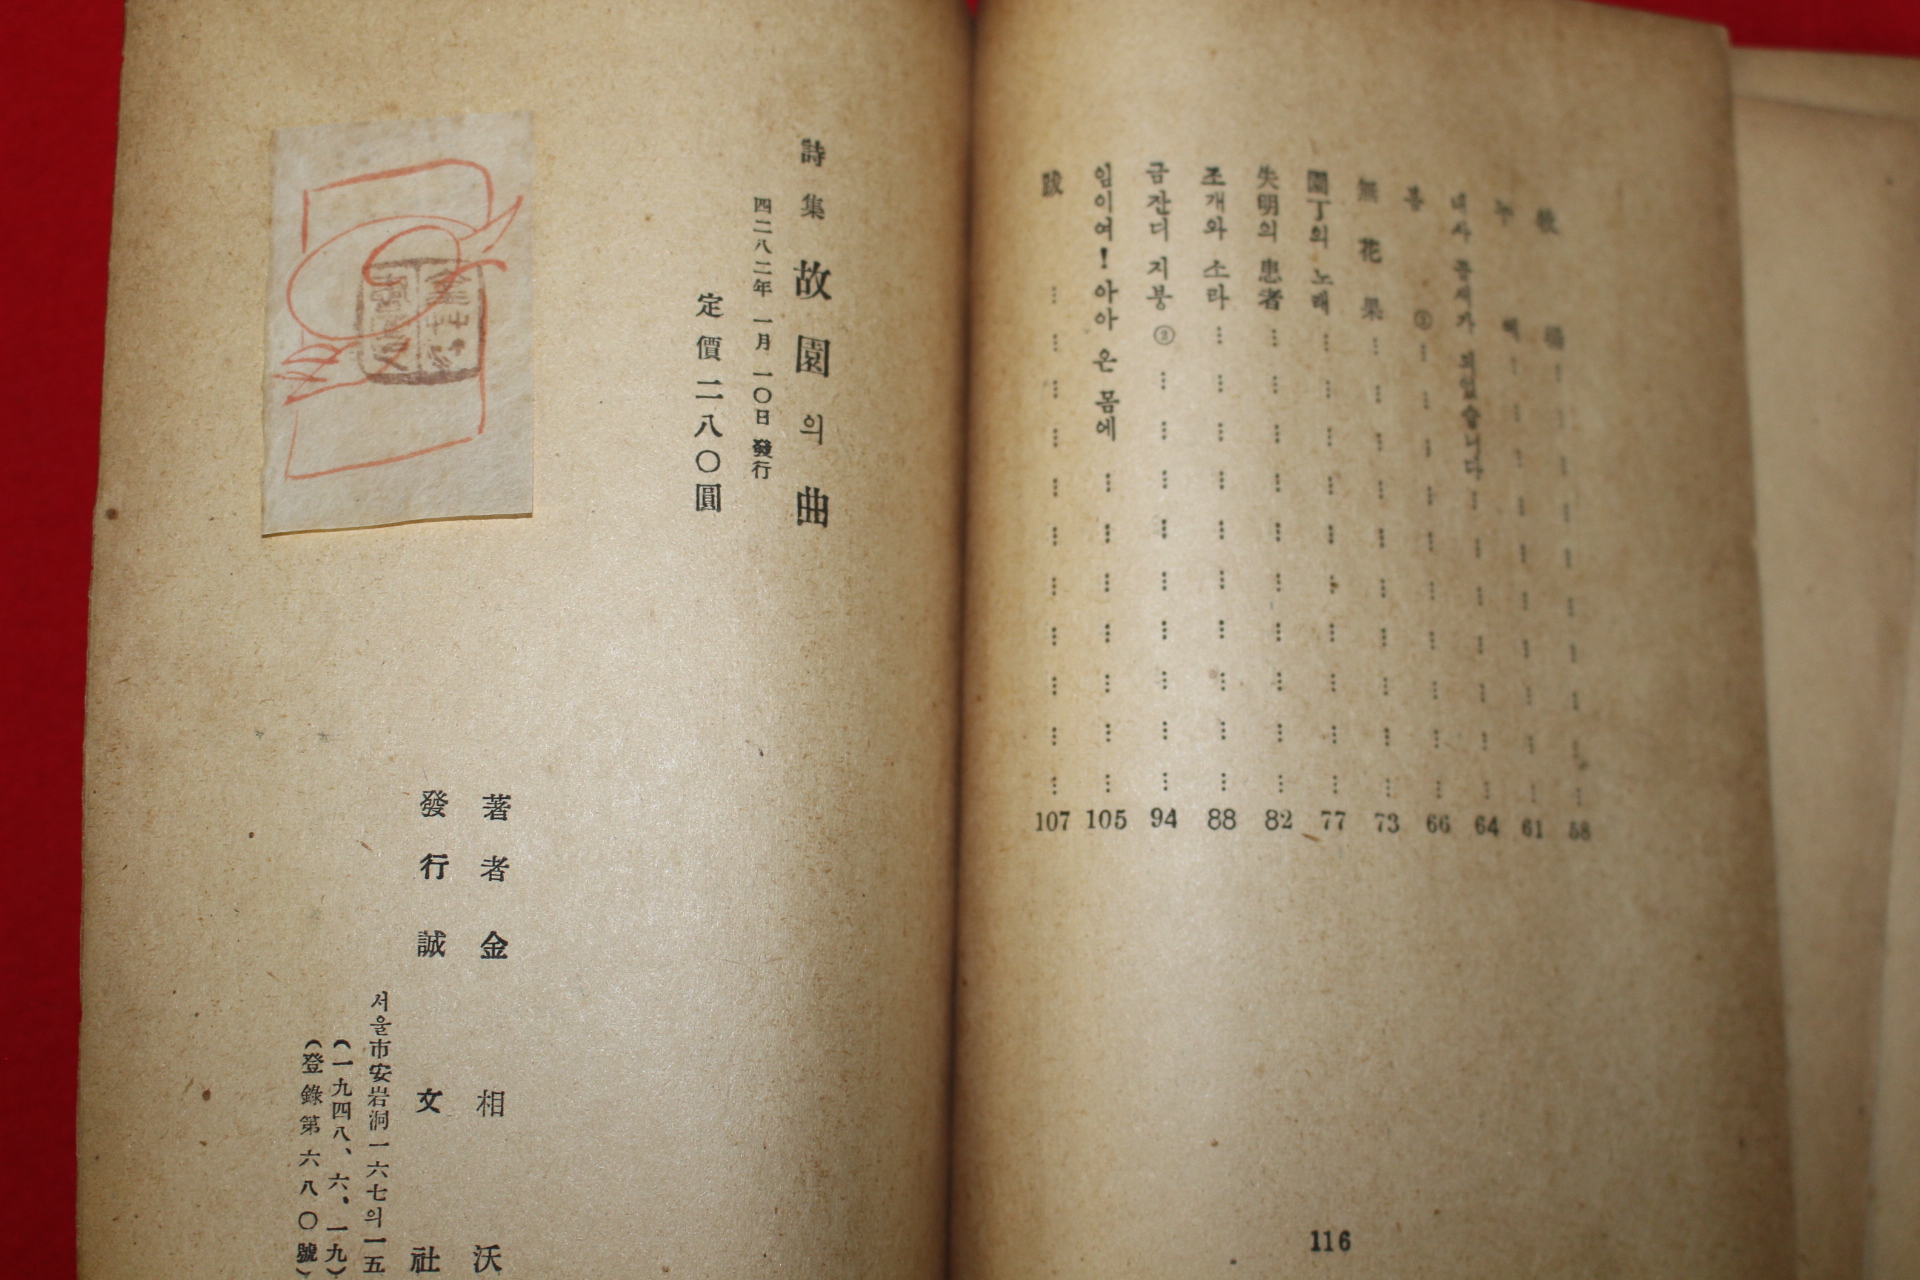 누 헤 61
내사 곰세가 되었습니다 64
봄 ① 66
無花果 73
園丁의 노래 77
失明의 患者 82
조개와 소라 88
금잔디 지붕 ② 94
임이여! 아아 온 몸에 105
跋 107
116
詩集 故園의 曲
四二八二年 一月 一〇日 發行
定價 二八〇圓
著者 金相沃
發行 誠文社
서울市安岩洞一六七의一五
(一九四八、六、一九)
(登錄第六八〇號)